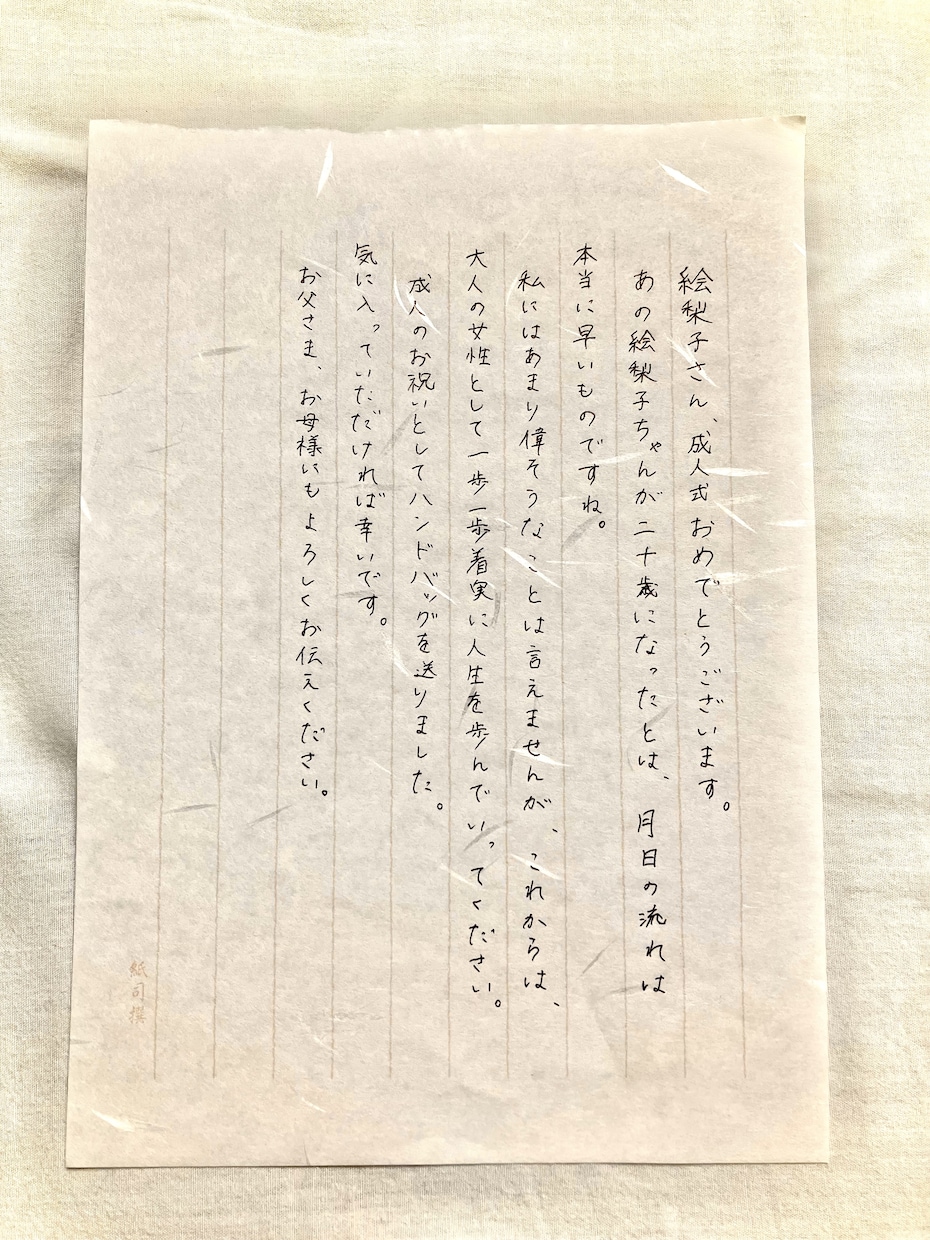 絵梨子さん、成人式おめでとうございます。
あの絵梨子ちゃんが二十歳になったとは、月日の流れは
本当に早いものですね。
私にはあまり偉そうなことは言えませんが、これからは、
大人の女性として一歩一歩着実に人生を歩んでいってください。
成人のお祝いとしてハンドバッグを送りました。
気に入っていただければ幸いです。
お父さま、お母様にもよろしくお伝えください。
紙司撰